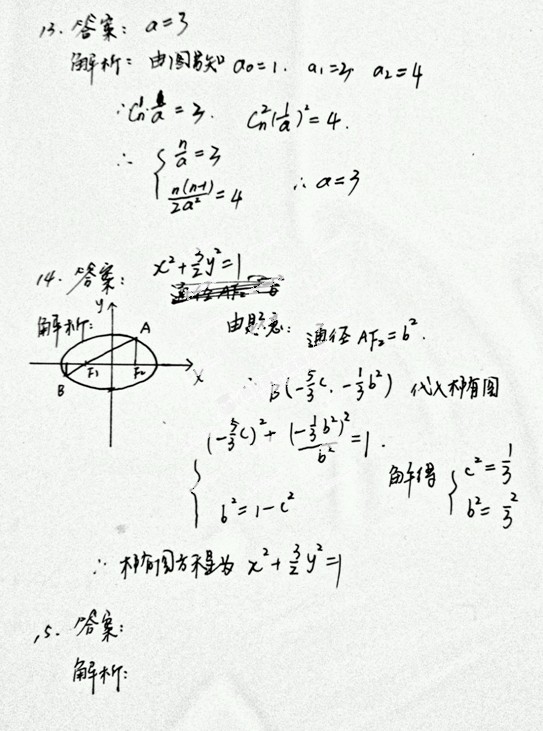 13. 答案: a=3
解析: 由图易知 a₀=1. a₁=3, a₂=4
∴Cₙ¹·1/a = 3. Cₙ²(1/a)² = 4.
∴ { n/a = 3
n(n-1)/2a² = 4 ∴ a=3
14. 答案: x²+3/2y²=1
解析: 由题意: 通径 AF₂=b².
y A
F₁ F₂ x
B
∴ B(-5/3c, -1/3b²) 代入椭圆
{ (-5/3c)² + (-1/3b²)²/b² = 1.
b²=1-c²
解得 { c²=1/3
b²=2/3
∴ 椭圆方程为 x²+3/2y²=1
15. 答案:
解析: